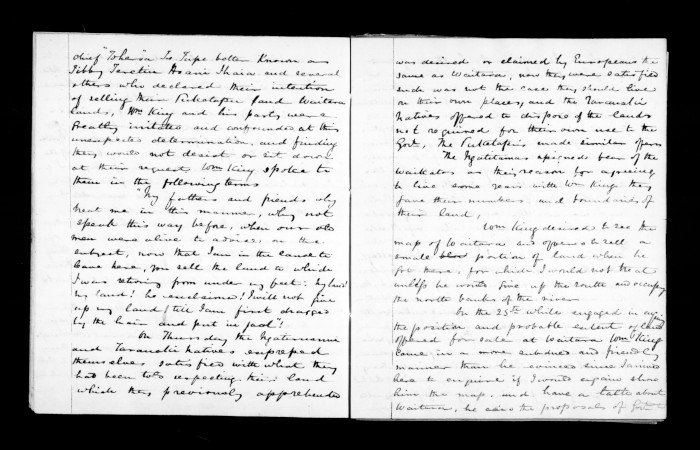 chief "Tohersa" Te Tupe better Known as
Tibby Teretiu Asani Ihaia and several
others who declared their intention
of selling their Pukatapu and Waitara
Lands, Wm King and his party were
greatly irritated and confounded at this
unexpected determination, and finding
they would not desist or sit down
at their request Wm King spoke to
them in the following terms
"My fathers and friends why
treat me in this manner, why not
speak this way before, when our old
men were alive to advise on the
subject, now that I am in the canoe to
leave here, you sell the land to which
I was retiring from under my feet: My land!
my land! he exclaimed! I will not give
up my land till I am first dragged
by the hair and put in jail"!
On Thursday the Ngatimamu
and Taranaki Natives expressed
themselves satisfied with what they
had been told respecting their land
which they previously apprehended
was desired or claimed by Europeans the
same as Waitara, now they were satisfied
such was not the case they should live
on their own places, and the Taranaki
Natives offered to dispose of the lands
not required for their own use to the
Govt, The Puketapus made similar offers
The Ngatitamas assigned fear of the
Waikatos as their reason for agreeing
to live some years with Wm King they
gave their numbers and boundaries of
their land,
Wm King desired to see the
map of Waitara and offered to sell a
small portion of land when he
got there, for which I would not treat
unless he would give up the south and occupy
the north banks of the river
On the 25th while engaged in
the position and probable extent of land
offered for sale at Waitara Wm King
came in a more subdued and friendly
manner than he evinced since I arrived
here to enquire if I would again show
him the map, and have a talk about
Waitara, he said the proposals of Govt